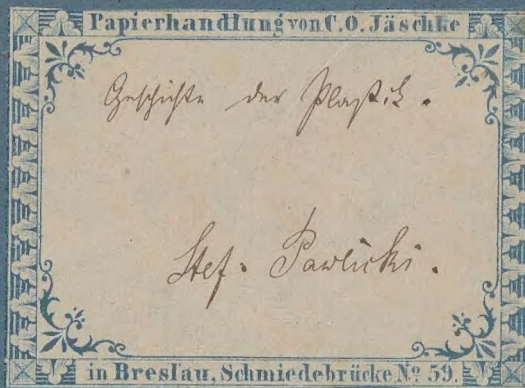 Papierhandlung von C. O. Jäschke
Geschichte der Plastik.
Stef. Pawlicki.
in Breslau, Schmiedebrücke No. 59.